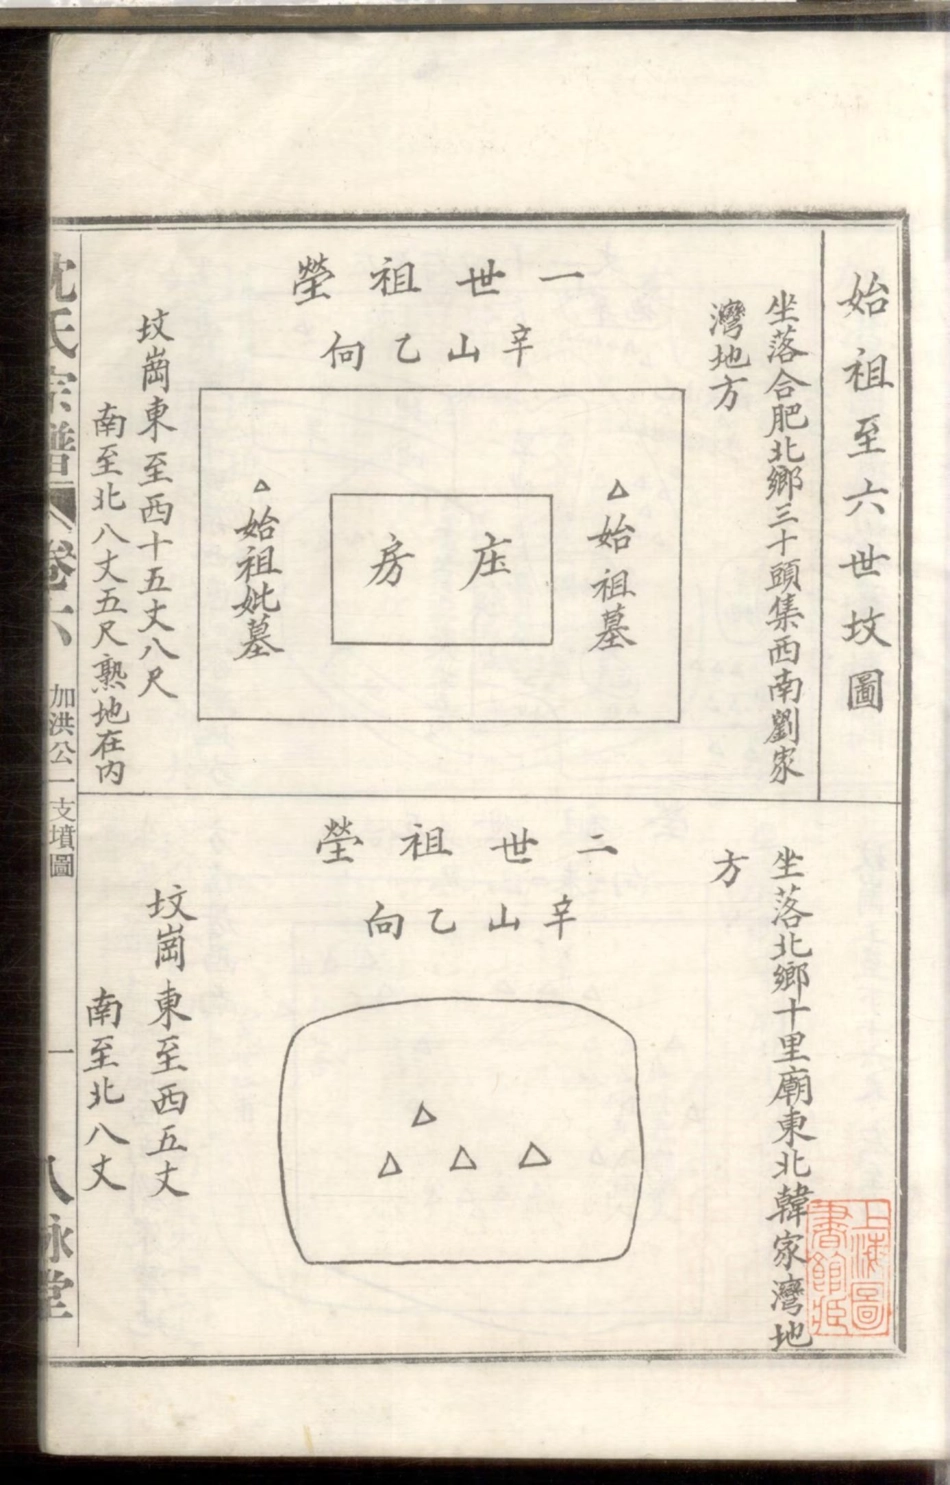 始祖至六世坟圖
坐落合肥北鄉三十頭集西南劉家
灣地方
一世祖塋
辛山乙向
始祖墓
庄房
始祖妣墓
坟崗東至西十五丈八尺
南至北八丈五尺熟地在内
坐落北鄉十里廟東北韓家灣地
方
二世祖塋
辛山乙向
坟崗東至西五丈
南至北八丈
沈氏宗譜
卷六
加洪公一支墳圖
一
八詠堂
上海圖
書館藏